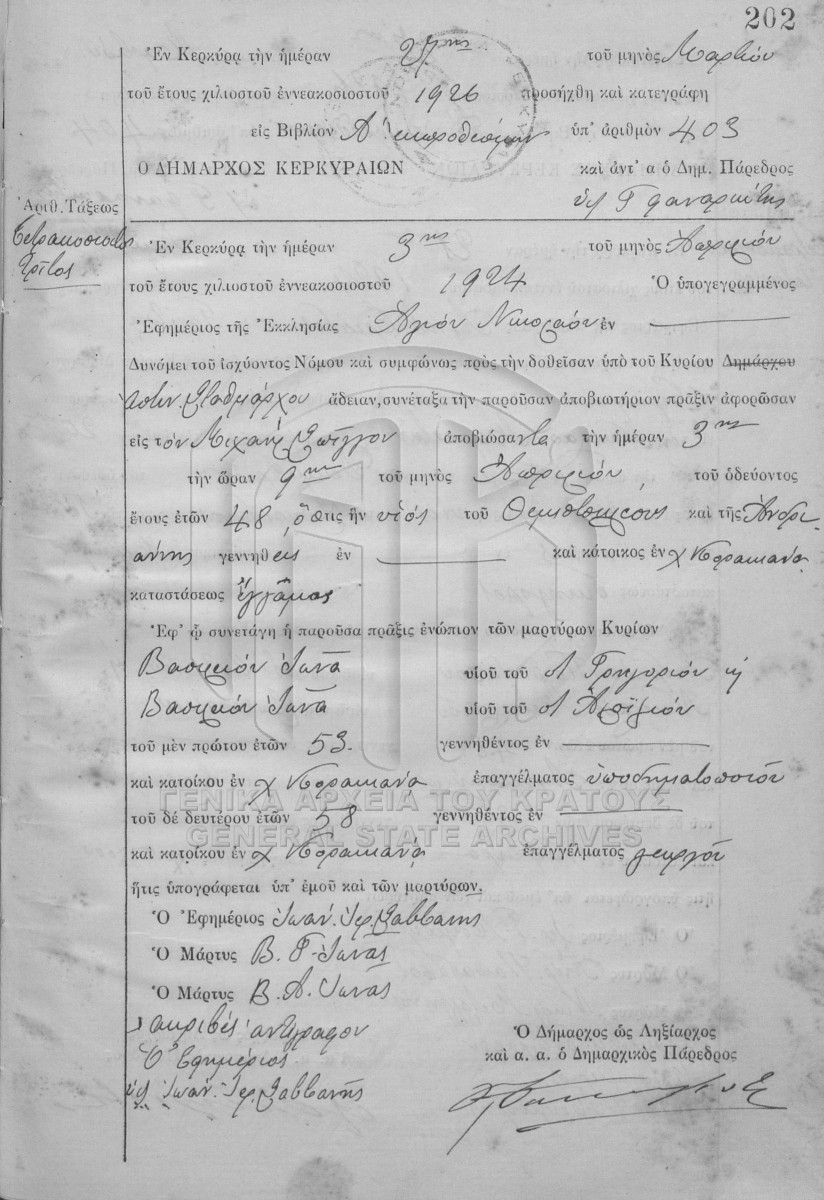 202
Ἐν Κερκύρᾳ τὴν ἡμέραν 27ης τοῦ μηνὸς Μαρτίου
τοῦ ἔτους χιλιοστοῦ ἐννεακοσιοστοῦ 1926 προσήχθη καὶ κατεγράφη
εἰς Βιβλίον Α ἐκπροθέσμων ὑπ' ἀριθμὸν 403
Ο ΔΗΜΑΡΧΟΣ ΚΕΡΚΥΡΑΙΩΝ καὶ ἀντ' α ὁ Δημ. Πάρεδρος
Γ Φαναριώτης
Ἀριθ. Τάξεως
Τετρακοσιοστὸς
τρίτος
Ἐν Κερκύρᾳ τὴν ἡμέραν 3ης τοῦ μηνὸς Ἀπριλίου
τοῦ ἔτους χιλιοστοῦ ἐννεακοσιοστοῦ 1924 Ὁ ὑπογεγραμμένος
Ἐφημέριος τῆς Ἐκκλησίας Ἁγίου Νικολάου ἐν
Δυνάμει τοῦ ἰσχύοντος Νόμου καὶ συμφώνως πρὸς τὴν δοθεῖσαν ὑπὸ τοῦ Κυρίου Δημάρχου
Ἀστυν. Σταθμάρχου ἄδειαν, συνέταξα τὴν παροῦσαν ἀποβιωτήριον πρᾶξιν ἀφορῶσαν
εἰς τὸν Μιχαὴλ ἀποβιώσαντα τὴν ἡμέραν 3ης
τὴν ὥραν 9ην τοῦ μηνὸς Ἀπριλίου τοῦ ὁδεύοντος
ἔτους ἐτῶν 48, ὅστις ἦν υἱὸς τοῦ Θεμιστοκλέους καὶ τῆς Ἀνδρι
άννης γεννηθεὶς ἐν καὶ κάτοικος ἐν χ Κορακιάνα
καταστάσεως ἔγγαμος
Ἐφ' ᾧ συνετάγη ἡ παροῦσα πρᾶξις ἐνώπιον τῶν μαρτύρων Κυρίων
Βασιλείου Ἰωνᾶ υἱοῦ τοῦ Γρηγορίου κ
Βασιλείου Ἰωνᾶ υἱοῦ τοῦ
τοῦ μὲν πρώτου ἐτῶν 53 γεννηθέντος ἐν
καὶ κατοίκου ἐν χ Κορακιάνα ἐπαγγέλματος ὑποδηματοποιοῦ
ΓΕΝΙΚΑ ΑΡΧΕΙΑ ΤΟΥ ΚΡΑΤΟΥΣ
τοῦ δέ δευτέρου ἐτῶν 58 γεννηθέντος ἐν
GENERAL STATE ARCHIVES
καὶ κατοίκου ἐν χ Κορακιάνα ἐπαγγέλματος γεωργοῦ
ἥτις ὑπογράφεται ὑπ' ἐμοῦ καὶ τῶν μαρτύρων.
Ὁ Ἐφημέριος Ἰωάν. Ἱερ. Σαββανῆς
Ὁ Μάρτυς Β. Γ. Ἰωνᾶς
Ὁ Μάρτυς Β. Α. Ἰωνᾶς
ἀκριβὲς ἀντίγραφον
Ὁ Ἐφημέριος
Ἰωάν. Ἱερ. Σαββανῆς
Ὁ Δήμαρχος ὡς Ληξίαρχος
καὶ α. α. ὁ Δημαρχικὸς Πάρεδρος